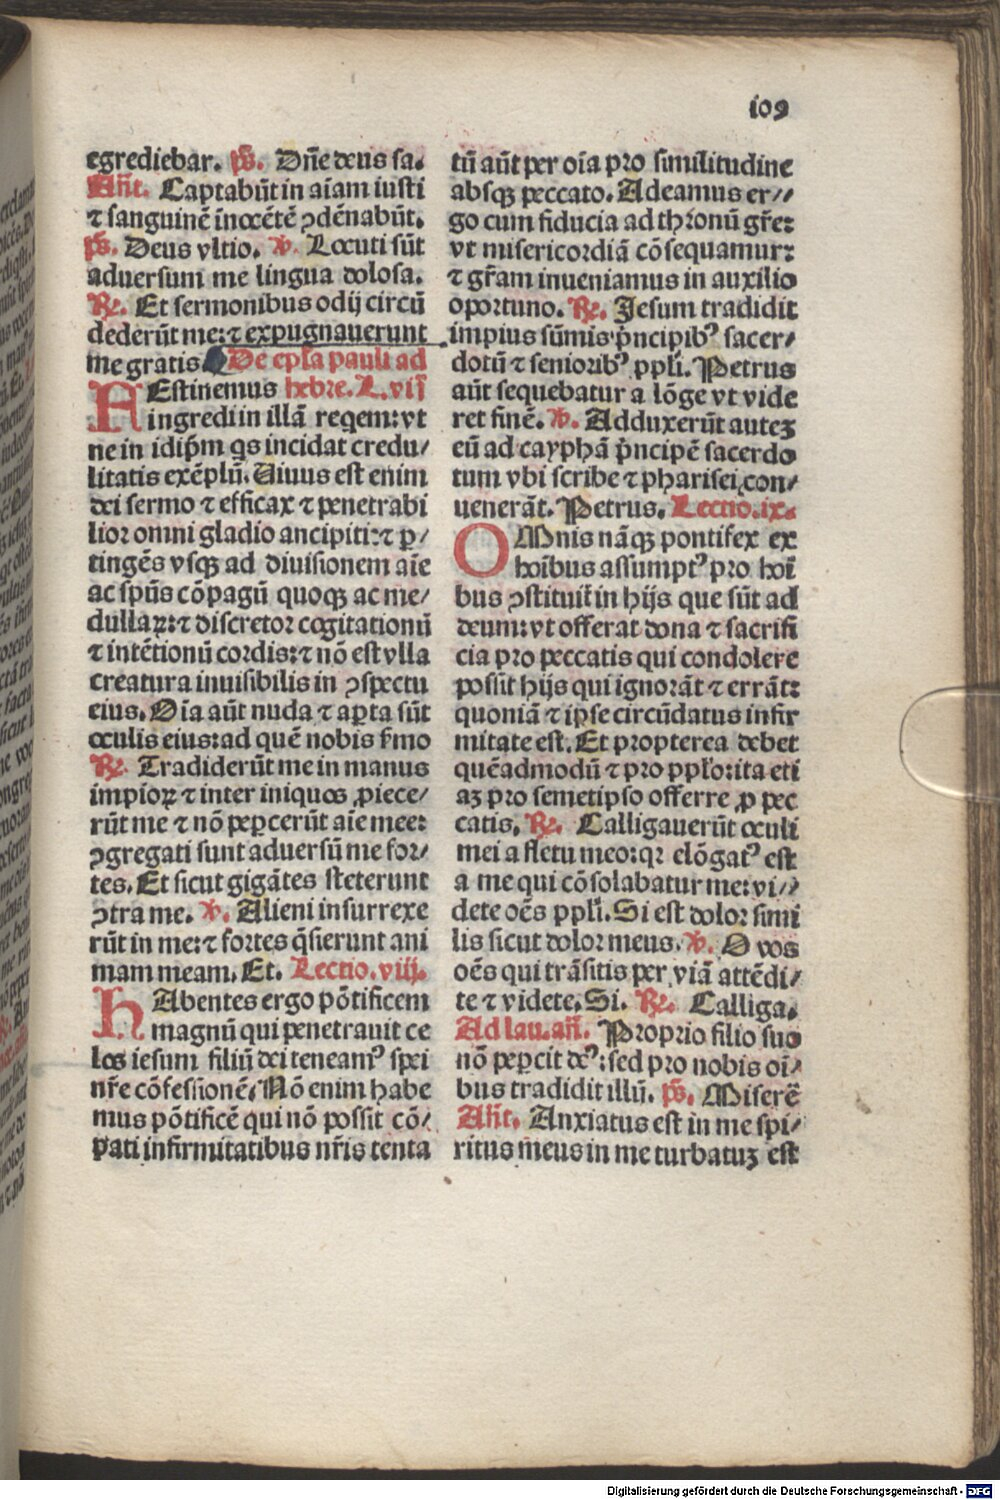 109
egrediebar. ps. Dn̄e deus sa.
An̄t. Captabūt in aīam iusti
⁊ sanguinē īnocētē ꝯdēnabūt.
ps. Deus vltio. ℣. Locuti sūt
aduersum me lingua dolosa.
℞. Et sermonibus odij circū
dederūt me:⁊ expugnauerunt
me gratis De ep̄la pauli ad
FEstinemus hebre. L. vij
ingredi in illā reqem: vt
ne in idip̄m qs incidat credu/
litatis exēplū. Viuus est enim
dei sermo ⁊ efficax ⁊ penetrabi
lior omni gladio ancipiti:⁊ ꝑ/
tingēs vsqꝫ ad diuisionem aīe
ac sp̄us cōpagū quoqꝫ ac me/
dullaꝝ:⁊ discretor cogitationū
⁊ intētionū cordis:⁊ nō est vlla
creatura inuisibilis in ꝯspectu
eius. Oīa aūt nuda ⁊ aꝑta sūt
oculis eius: ad quē nobis ẜmo
℞. Tradiderūt me in manus
impioꝝ ⁊ inter iniquos ꝓiece/
rūt me ⁊ nō peꝑcerūt aīe mee:
ꝯgregati sunt aduersū me for/
tes. Et sicut gigātes steterunt
ꝯtra me. ℣. Alieni insurrexe
rūt in me:⁊ fortes q̄sierunt ani
mam meam. Et. Lectio. viij.
HAbentes ergo pōtificem
magnū qui penetrauit ce
los iesum filiū dei teneamꝰ spei
nr̄e cōfessionē. Nō enim habe
mus pōtificē qui nō possit cō/
pati infirmitatibus nr̄is tenta
tū aūt per oīa pro similitudine
absqꝫ peccato. Adeamus er//
go cum fiducia ad thronū gr̄e:
vt misericordiā cōsequamur:
⁊ gr̄am inueniamus in auxilio
oportuno. ℞. Jesum tradidit
impius sūmis pͥncipibꝰ sacer/
dotū ⁊ senioribꝰ ppl̄i. Petrus
aūt sequebatur a lōge vt vide
ret finē. ℣. Adduxerūt auteꝫ
eū ad cayphā pͥncipē sacerdo
tum vbi scribe ⁊ pharisei con/
uenerāt. Petrus. Lectio. ix.
OMnis nāqꝫ pontifex ex
hoībus assumptꝰ pro hoī
bus ꝯstituit̄ in hijs que sūt ad
deum: vt offerat dona ⁊ sacrifi
cia pro peccatis qui condolere
possit hijs qui ignorāt ⁊ errāt:
quoniā ⁊ ipse circūdatus infir
mitate est. Et propterea debet
quēadmodū ⁊ pro ppl̄o: ita eti
aꝫ pro semetipso offerre ꝓ pec
catis. ℞. Calligauerūt oculi
mei a fletu meo: qꝛ elōgatꝰ est
a me qui cōsolabatur me: vi//
dete oēs ppl̄i. Si est dolor simi
lis sicut dolor meus. ℣. O vos
oēs qui trāsitis per viā attēdi/
te ⁊ videte. Si. ℞. Calliga.
Ad lau. an̄. Proprio filio suo
nō peꝑcit deꝰ: sed pro nobis oī/
bus tradidit illū. ps. Miserē
An̄t. Anxiatus est in me spi/
ritus meus in me turbatuꝫ est
Digitalisierung gefördert durch die Deutsche Forschungsgemeinschaft - DFG